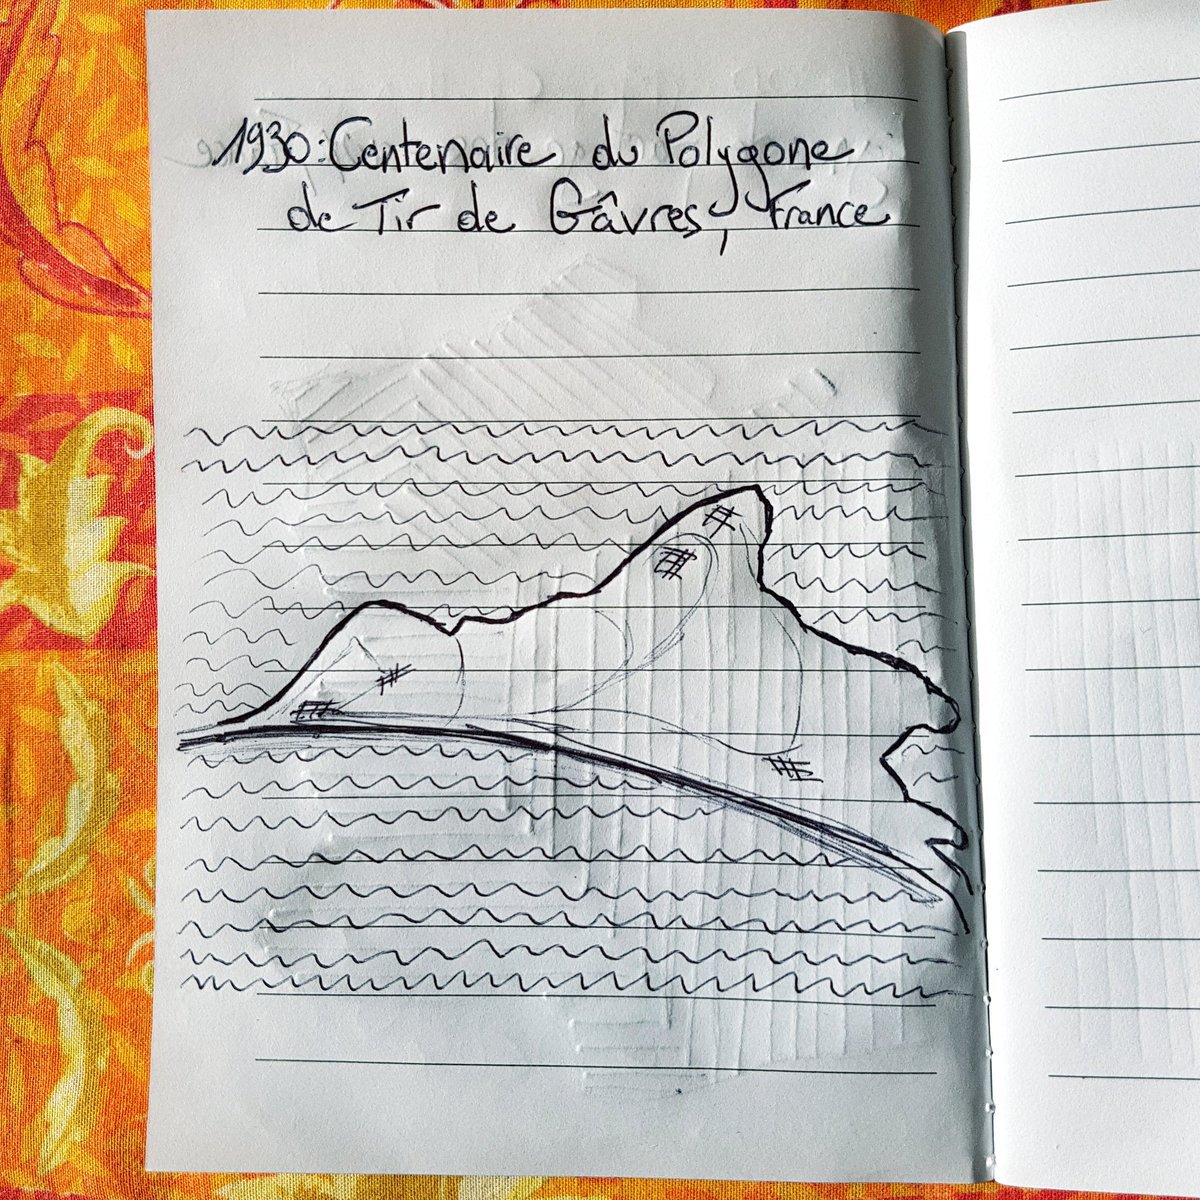 1930: Centenaire du Polygone
de Tir de Gâvres, France